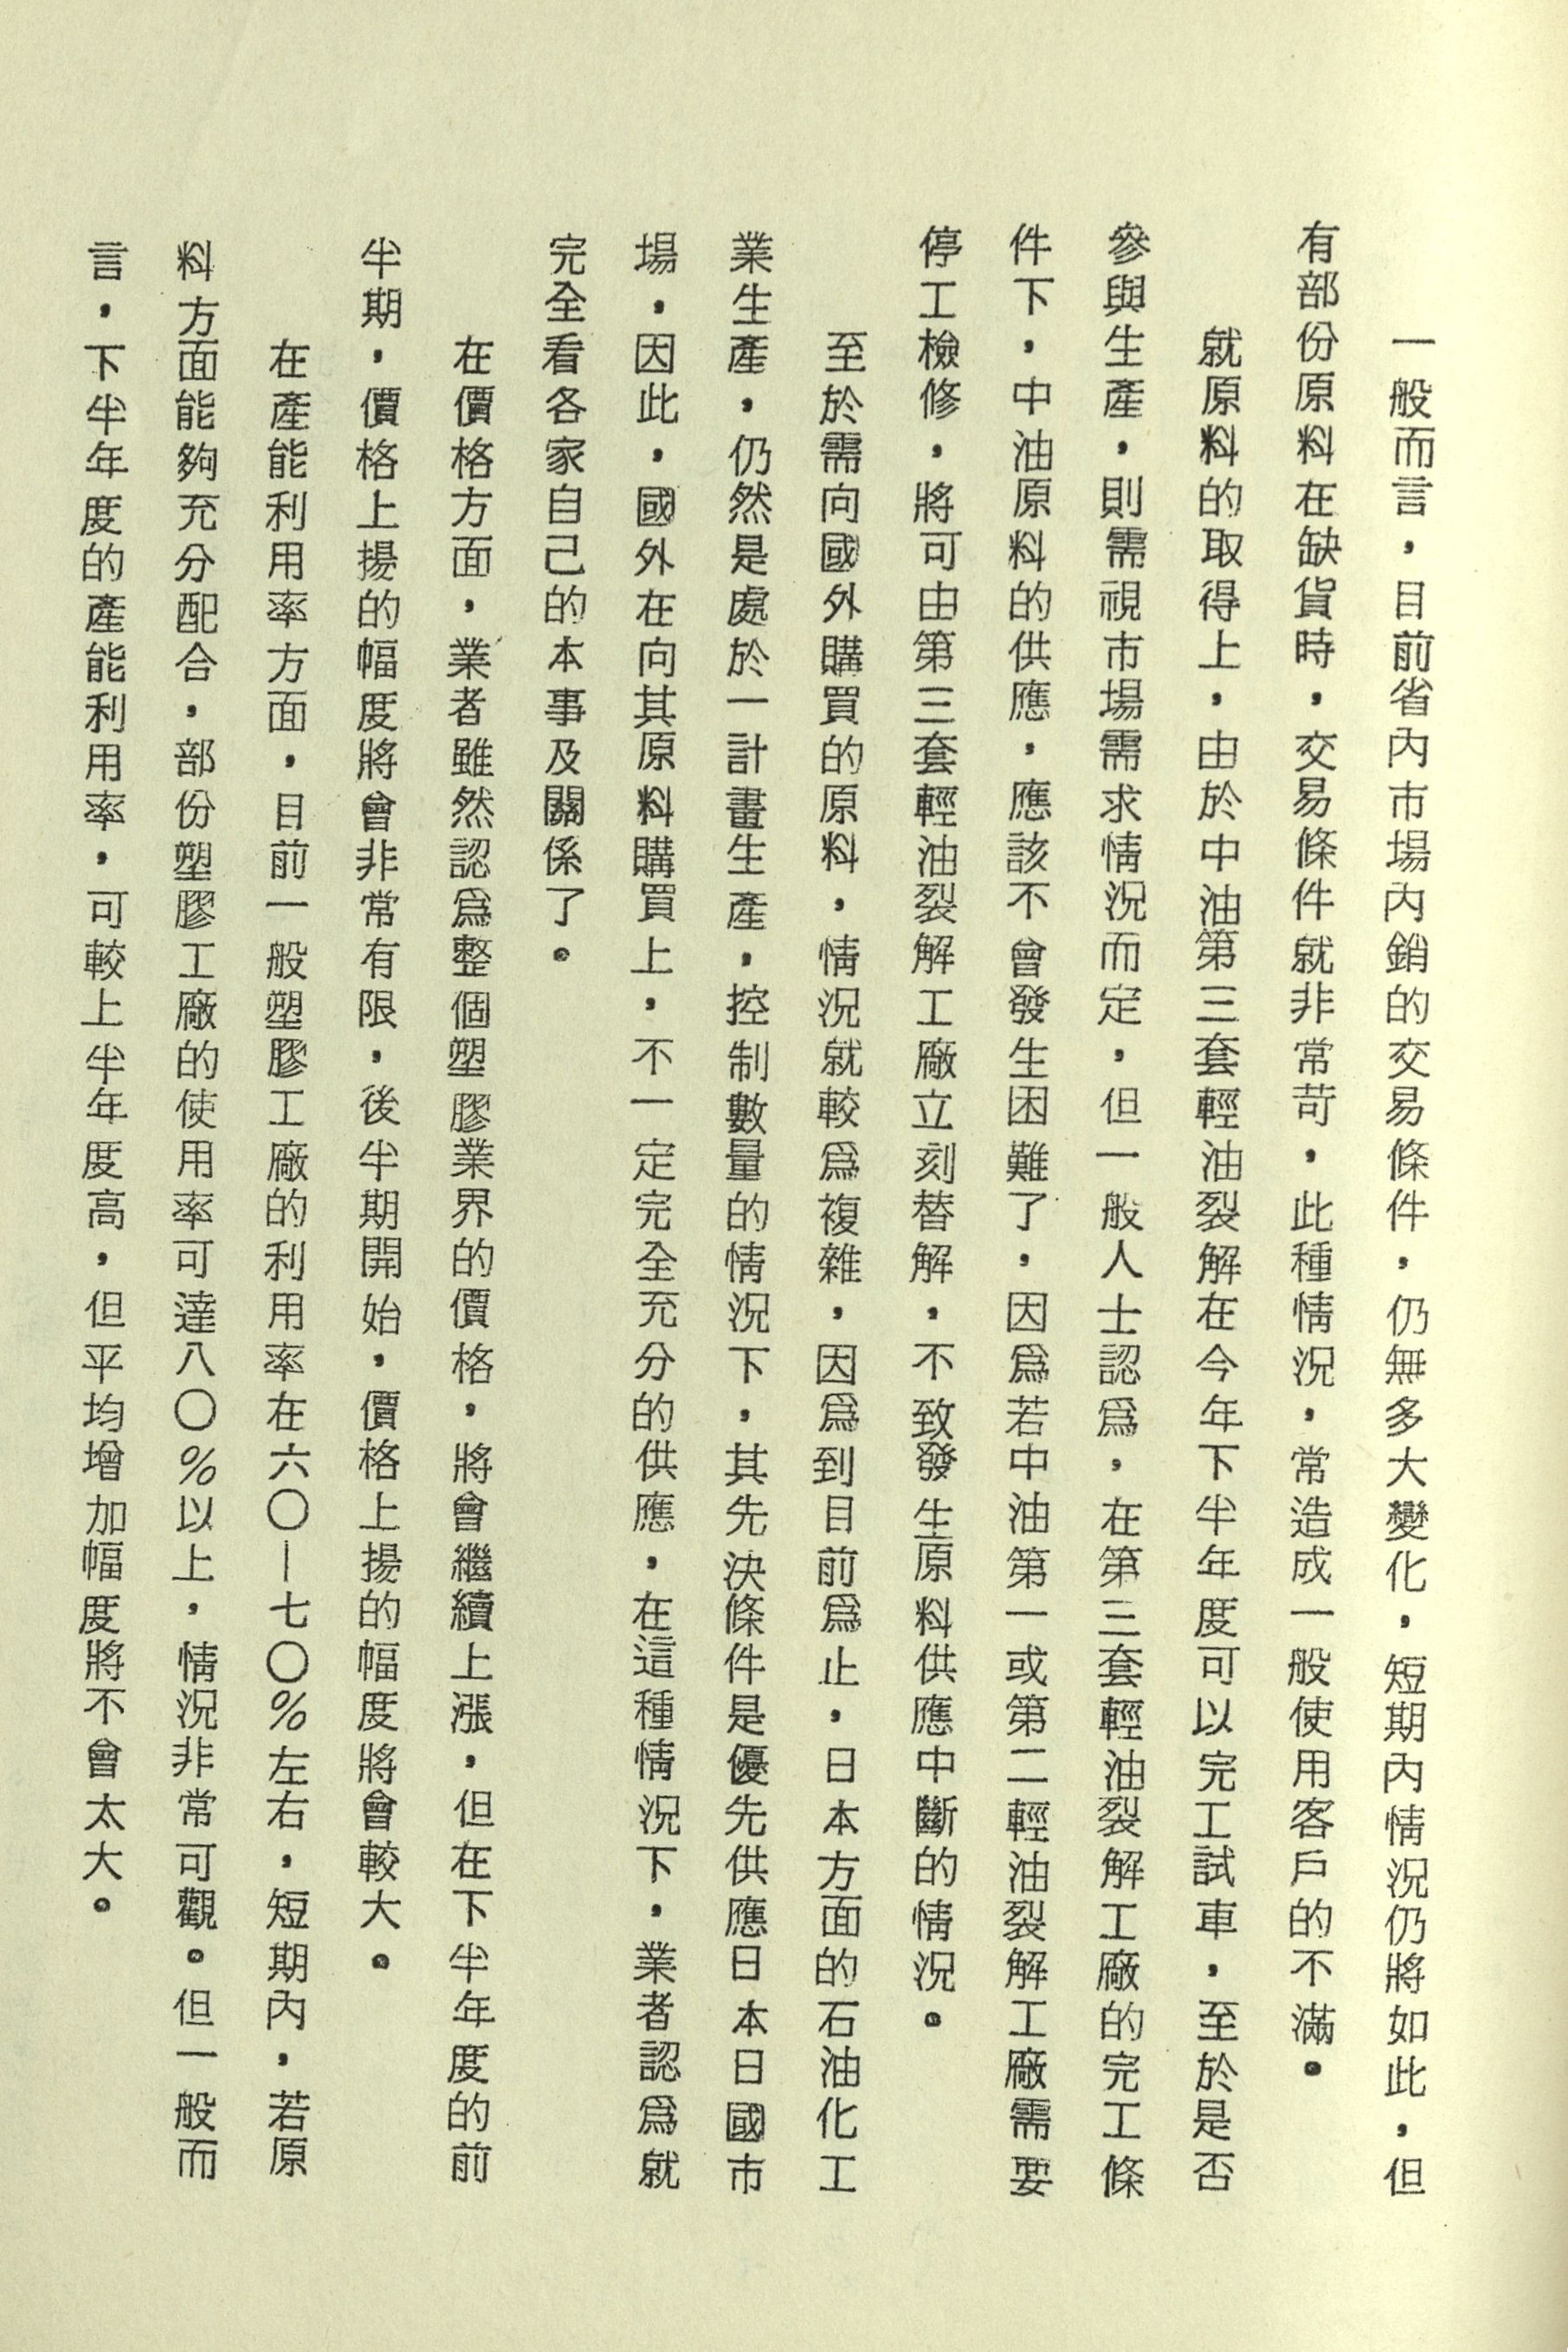 一般而言，目前省內市場內銷的交易條件，仍無多大變化，短期內情況仍將如此，但
有部份原料在缺貨時，交易條件就非常苛，此種情況，常造成一般使用客戶的不滿。
就原料的取得上，由於中油第三套輕油裂解在今年下半年度可以完工試車，至於是否
參與生產，則需視市場需求情況而定，但一般人士認爲，在第三套輕油裂解工廠的完工條
件下，中油原料的供應，應該不會發生困難了，因爲若中油第一或第二輕油裂解工廠需要
停工檢修，將可由第三套輕油裂解工廠立刻替解，不致發生原料供應中斷的情況。
至於需向國外購買的原料，情況就較爲複雜，因爲到目前爲止，日本方面的石油化工
業生產，仍然是處於一計畫生產，控制數量的情況下，其先決條件是優先供應日本日國市
場，因此，國外在向其原料購買上，不一定完全充分的供應，在這種情況下，業者認爲就
完全看各家自己的本事及關係了。
在價格方面，業者雖然認爲整個塑膠業界的價格，將會繼續上漲，但在下半年度的前
半期，價格上揚的幅度將會非常有限，後半期開始，價格上揚的幅度將會較大。
在產能利用率方面，目前一般塑膠工廠的利用率在六〇—七〇%左右，短期內，若原
料方面能夠充分配合，部份塑膠工廠的使用率可達八〇%以上，情況非常可觀。但一般而
言，下半年度的產能利用率，可較上半年度高，但平均增加幅度將不會太大。